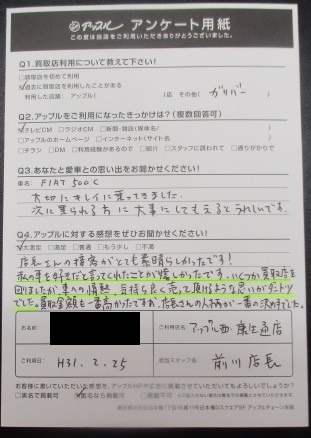 アップル アンケート用紙
この度は当店をご利用いただきありがとうございました。
Q1.買取店利用について教えて下さい!
□買取店を初めて利用
☑過去に買取店を利用したことがある
利用した店舗： アップル( )店 その他( ガリバー )
Q2.アップルをご利用になったきっかけは?(複数回答可)
☑テレビCM □ラジオCM □新聞・雑誌(媒体名/ )
□アップルのホームページ □インターネット(サイト名 )
□チラシ □DM □利用経験があるので □紹介 □スタッフに誘われて □通りがかりで
Q3.あなたと愛車との思い出をお聞かせください!
車名: FIAT 500C
大切にキレイに乗ってきました。
次に乗られる方に大事にしてもらえるとうれしいです。
Q4.アップルに対する感想をぜひお聞かせください!
☑大満足 □満足 □普通 □もう少し □不満
店長さんの接客がとても素晴らしかったです!
私の車を好きだと言ってくれたことが嬉しかったです。いくつか買取店を
回りましたが、車への情熱、気持ち良く売って頂けるような思いがダントツ
でした。買取金額も一番高かったですが、店長さんの人柄が一番の決め手でした。
お名前
ご利用店名 アップル西・康生通店
ご利用日 H31.2.25
担当スタッフ名 前川店長
お客様に書いていただいた感想を、アップルHPや広告に掲載させていただいてもよろしいでしょうか?
□実名で掲載可 ☑匿名なら掲載可 □掲載不可